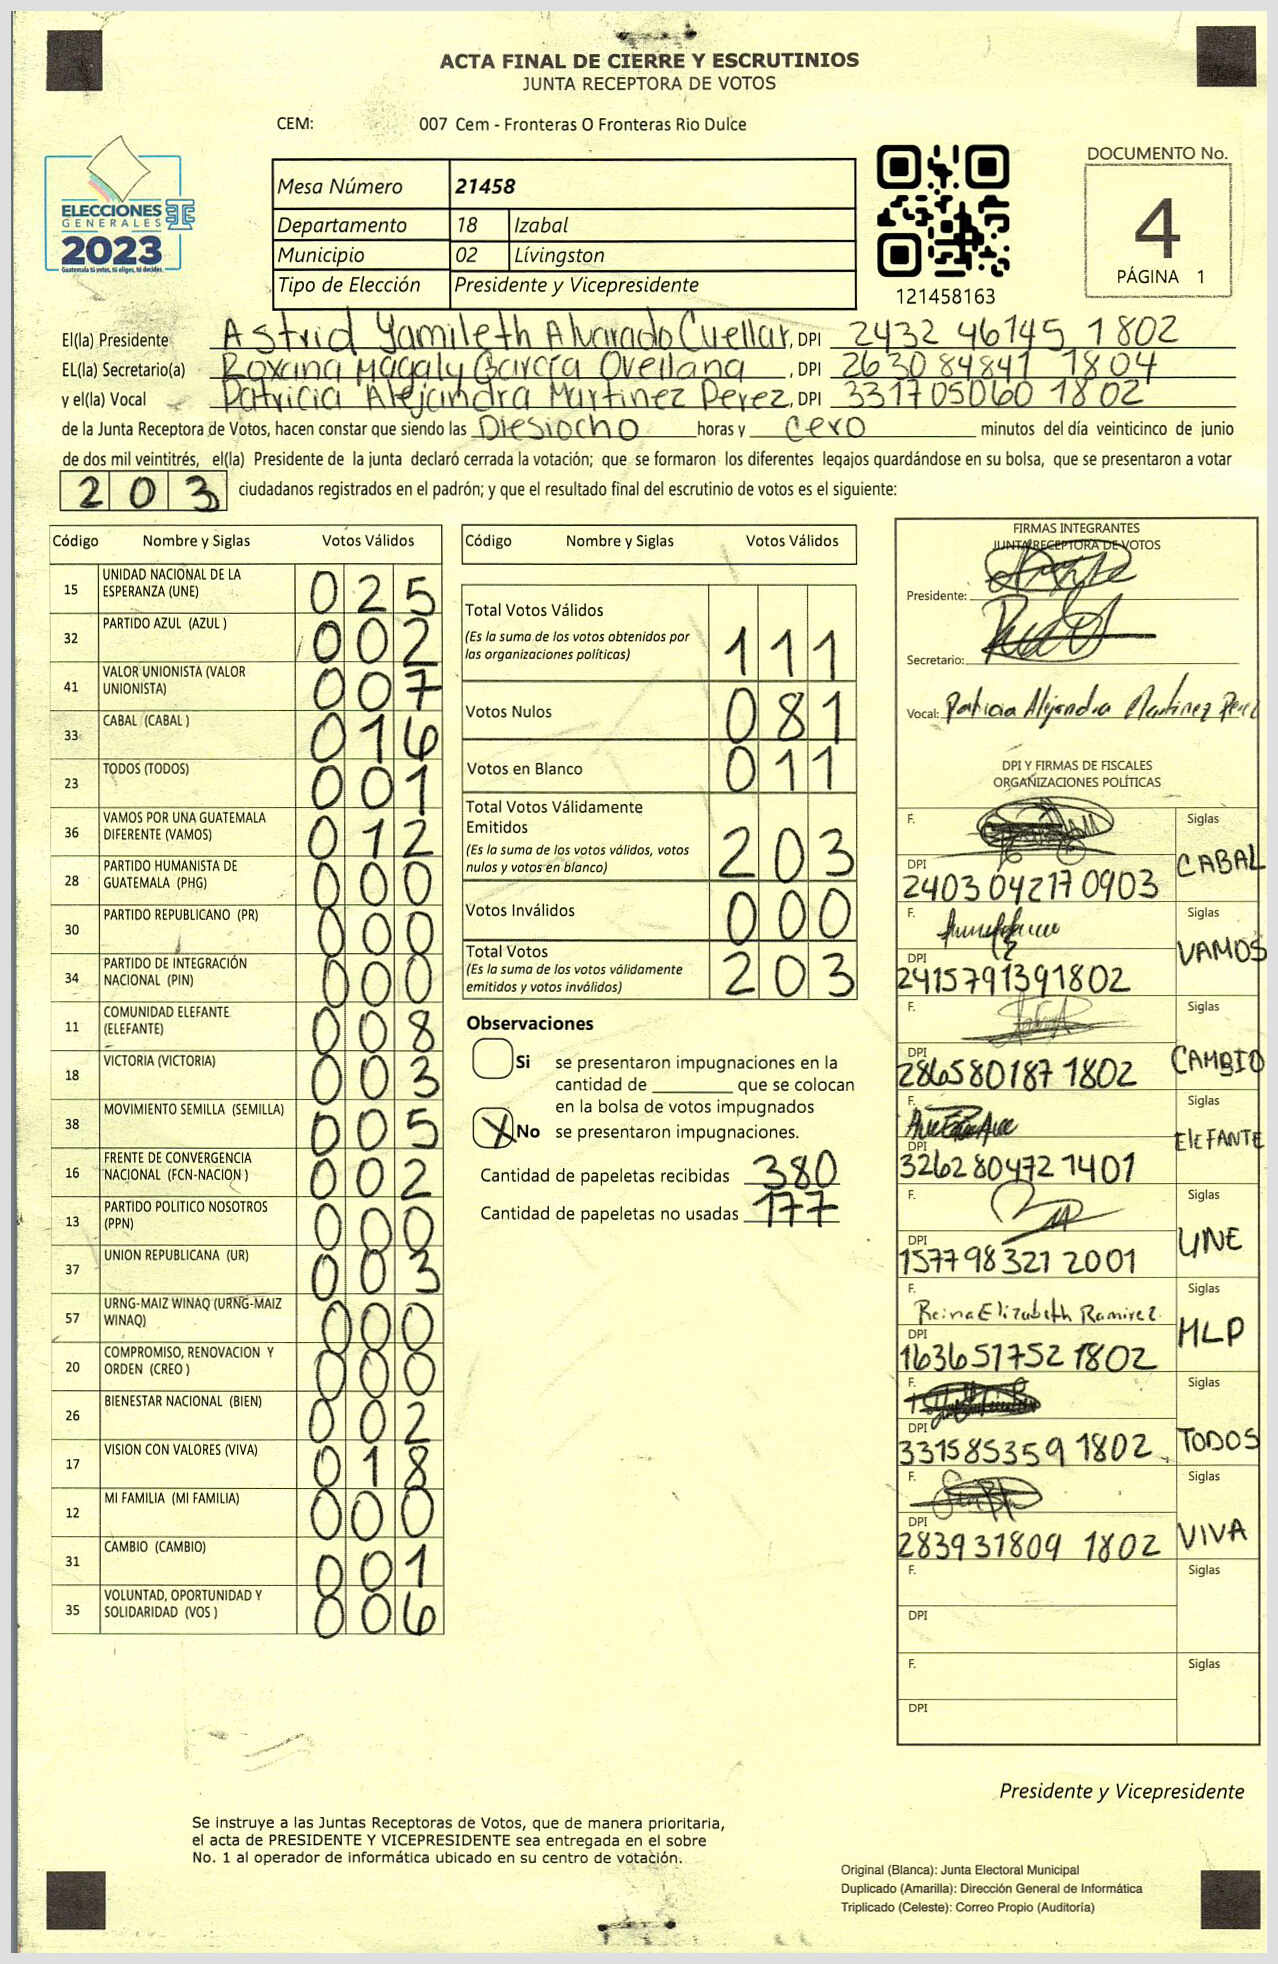 ACTA FINAL DE CIERRE Y ESCRUTINIOS
JUNTA RECEPTORA DE VOTOS
CEM: 007 Cem - Fronteras O Fronteras Rio Dulce
ELECCIONES
GENERALES
2023
Guatemala tú votas, tú eliges, tú decides.
Mesa Número 21458
Departamento 18 Izabal
Municipio 02 Lívingston
Tipo de Elección Presidente y Vicepresidente
121458163
DOCUMENTO No.
4
PÁGINA 1
El(la) Presidente Astrid Yamileth Alvarado Cuellar, DPI 2432 46145 1802
EL(la) Secretario(a) Roxana Magaly García Ovellana, DPI 2630 84841 1804
y el(la) Vocal Patricia Alejandra Martinez Perez, DPI 3317 05060 1802
de la Junta Receptora de Votos, hacen constar que siendo las Diesiocho horas y cero minutos del día veinticinco de junio
de dos mil veintitrés, el(la) Presidente de la junta declaró cerrada la votación; que se formaron los diferentes legajos guardándose en su bolsa, que se presentaron a votar
203 ciudadanos registrados en el padrón; y que el resultado final del escrutinio de votos es el siguiente:
Código Nombre y Siglas Votos Válidos
15 UNIDAD NACIONAL DE LA ESPERANZA (UNE) 025
32 PARTIDO AZUL (AZUL ) 002
41 VALOR UNIONISTA (VALOR UNIONISTA) 007
33 CABAL (CABAL ) 016
23 TODOS (TODOS) 001
36 VAMOS POR UNA GUATEMALA DIFERENTE (VAMOS) 012
28 PARTIDO HUMANISTA DE GUATEMALA (PHG) 000
30 PARTIDO REPUBLICANO (PR) 000
34 PARTIDO DE INTEGRACIÓN NACIONAL (PIN) 000
11 COMUNIDAD ELEFANTE (ELEFANTE) 008
18 VICTORIA (VICTORIA) 003
38 MOVIMIENTO SEMILLA (SEMILLA) 005
16 FRENTE DE CONVERGENCIA NACIONAL (FCN-NACION ) 002
13 PARTIDO POLITICO NOSOTROS (PPN) 000
37 UNION REPUBLICANA (UR) 003
57 URNG-MAIZ WINAQ (URNG-MAIZ WINAQ) 000
20 COMPROMISO, RENOVACION Y ORDEN (CREO ) 000
26 BIENESTAR NACIONAL (BIEN) 002
17 VISION CON VALORES (VIVA) 018
12 MI FAMILIA (MI FAMILIA) 000
31 CAMBIO (CAMBIO) 001
35 VOLUNTAD, OPORTUNIDAD Y SOLIDARIDAD (VOS ) 006
Código Nombre y Siglas Votos Válidos
Total Votos Válidos 111
(Es la suma de los votos obtenidos por
las organizaciones políticas)
Votos Nulos 081
Votos en Blanco 011
Total Votos Válidamente
Emitidos 203
(Es la suma de los votos válidos, votos
nulos y votos en blanco)
Votos Inválidos 000
Total Votos 203
(Es la suma de los votos válidamente
emitidos y votos inválidos)
Observaciones
Si se presentaron impugnaciones en la
cantidad de ________ que se colocan
en la bolsa de votos impugnados
X No se presentaron impugnaciones.
Cantidad de papeletas recibidas 380
Cantidad de papeletas no usadas 177
FIRMAS INTEGRANTES
JUNTA RECEPTORA DE VOTOS
Presidente:
Secretario:
Vocal: Patricia Alejandra Martinez Perez
DPI Y FIRMAS DE FISCALES
ORGANIZACIONES POLÍTICAS
F. Siglas
DPI 2403 04217 0903 CABAL
F. Siglas
DPI 2415791391802 VAMOS
F. Siglas
DPI 286580187 1802 CAMBIO
F. Siglas
DPI 326280472 1401 ElEFANTE
F. Siglas
DPI 157798321 2001 UNE
F. Reina Elizabeth Ramirez Siglas
DPI 163651752 1802 MLP
F. Siglas
DPI 331585359 1802 TODOS
F. Siglas
DPI 283931809 1802 VIVA
F. Siglas
DPI
F. Siglas
DPI
Presidente y Vicepresidente
Se instruye a las Juntas Receptoras de Votos, que de manera prioritaria,
el acta de PRESIDENTE Y VICEPRESIDENTE sea entregada en el sobre
No. 1 al operador de informática ubicado en su centro de votación.
Original (Blanca): Junta Electoral Municipal
Duplicado (Amarilla): Dirección General de Informática
Triplicado (Celeste): Correo Propio (Auditoría)